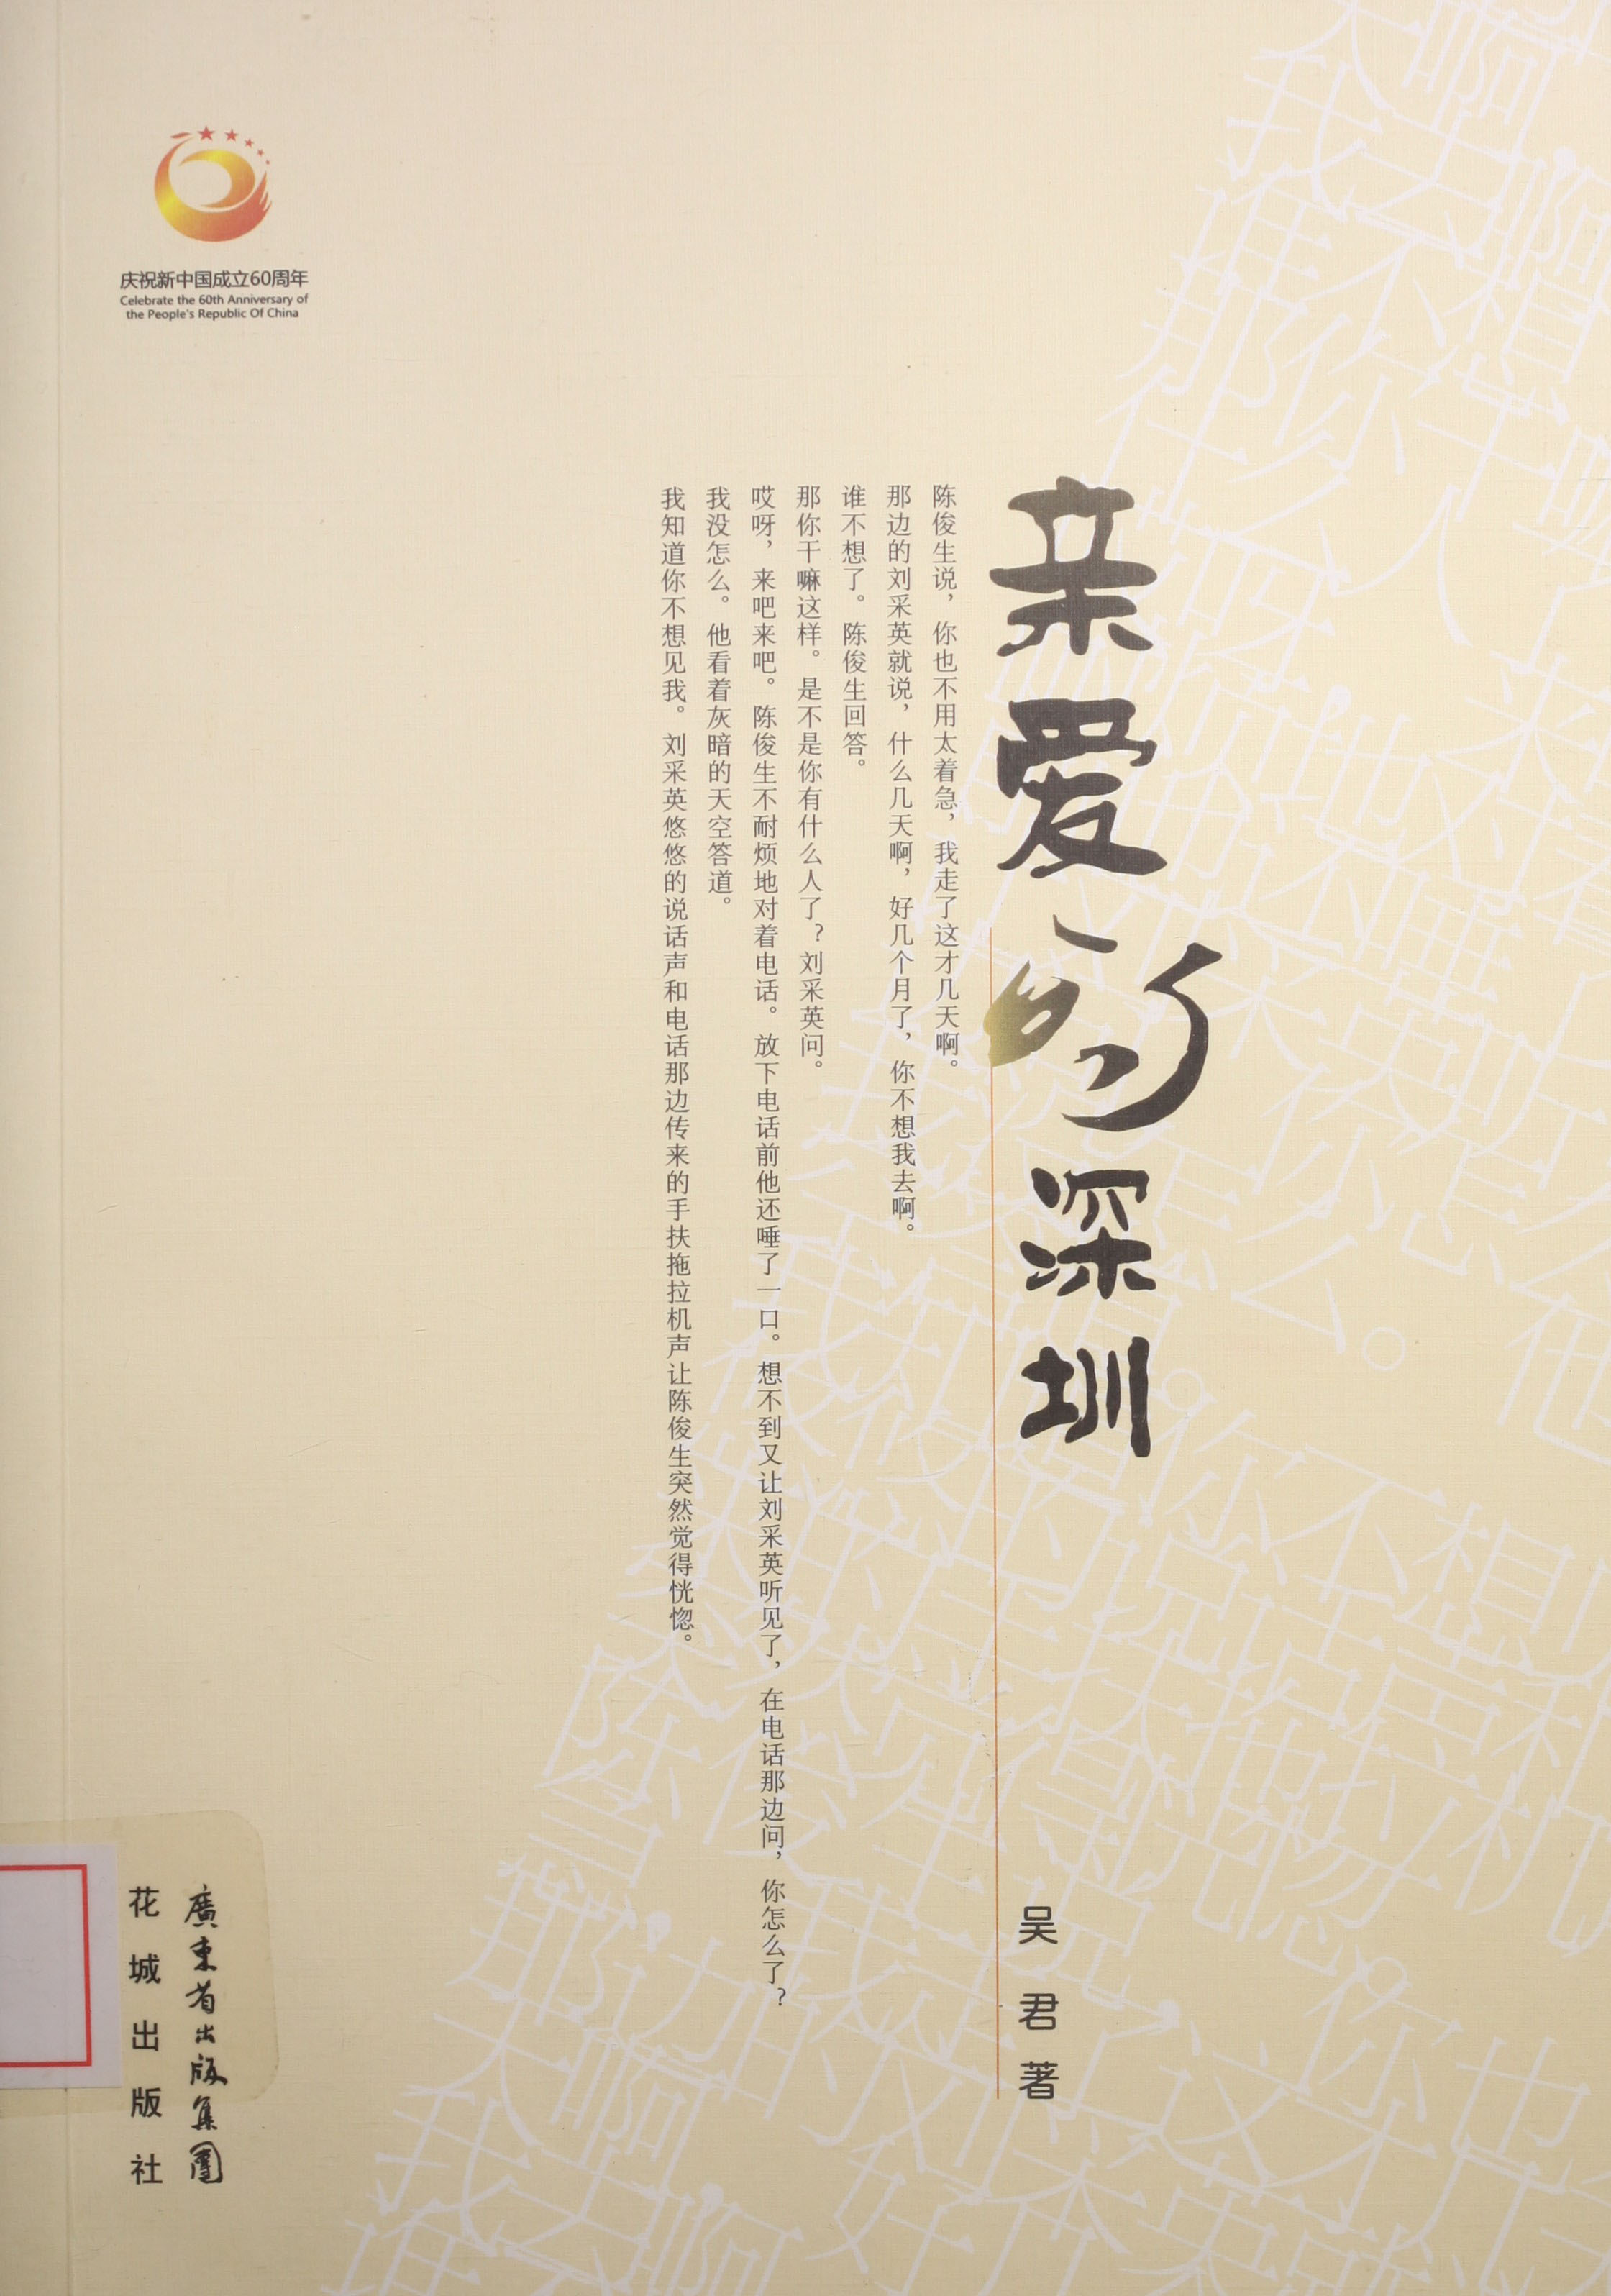 庆祝新中国成立60周年
Celebrate the 60th Anniversary of
the People's Republic Of China
亲爱的深圳
陈俊生说，你也不用太着急，我走了这才几天啊。
那边的刘采英就说，什么几天啊，好几个月了，你不想我去啊。
谁不想了。陈俊生回答。
那你干嘛这样。是不是你有什么人了？刘采英问。
哎呀，来吧来吧。陈俊生不耐烦地对着电话。放下电话前他还唾了一口。想不到又让刘采英听见了，在电话那边问，你怎么了？
我没怎么。他看着灰暗的天空答道。
我知道你不想见我。刘采英悠悠的说话声和电话那边传来的手扶拖拉机声让陈俊生突然觉得恍惚。
吴君著
廣東省出版集團
花城出版社